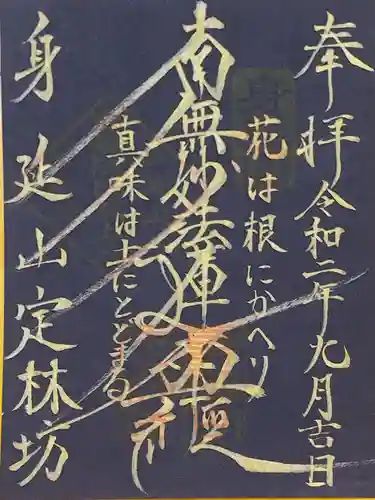 奉拝 令和二年九月吉日
花は根にかへり
南無妙法蓮華経
真味は土にとどまる
身延山定林坊